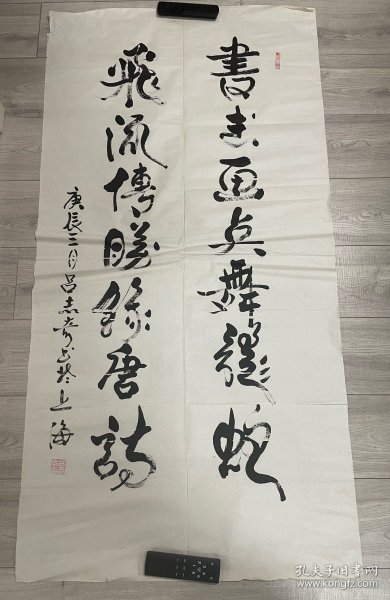 書走画点舞龍蛇
飛流博勝錄唐詩
庚辰三月吕志奇书於上海
孔夫子旧书网
www.kongfz.com